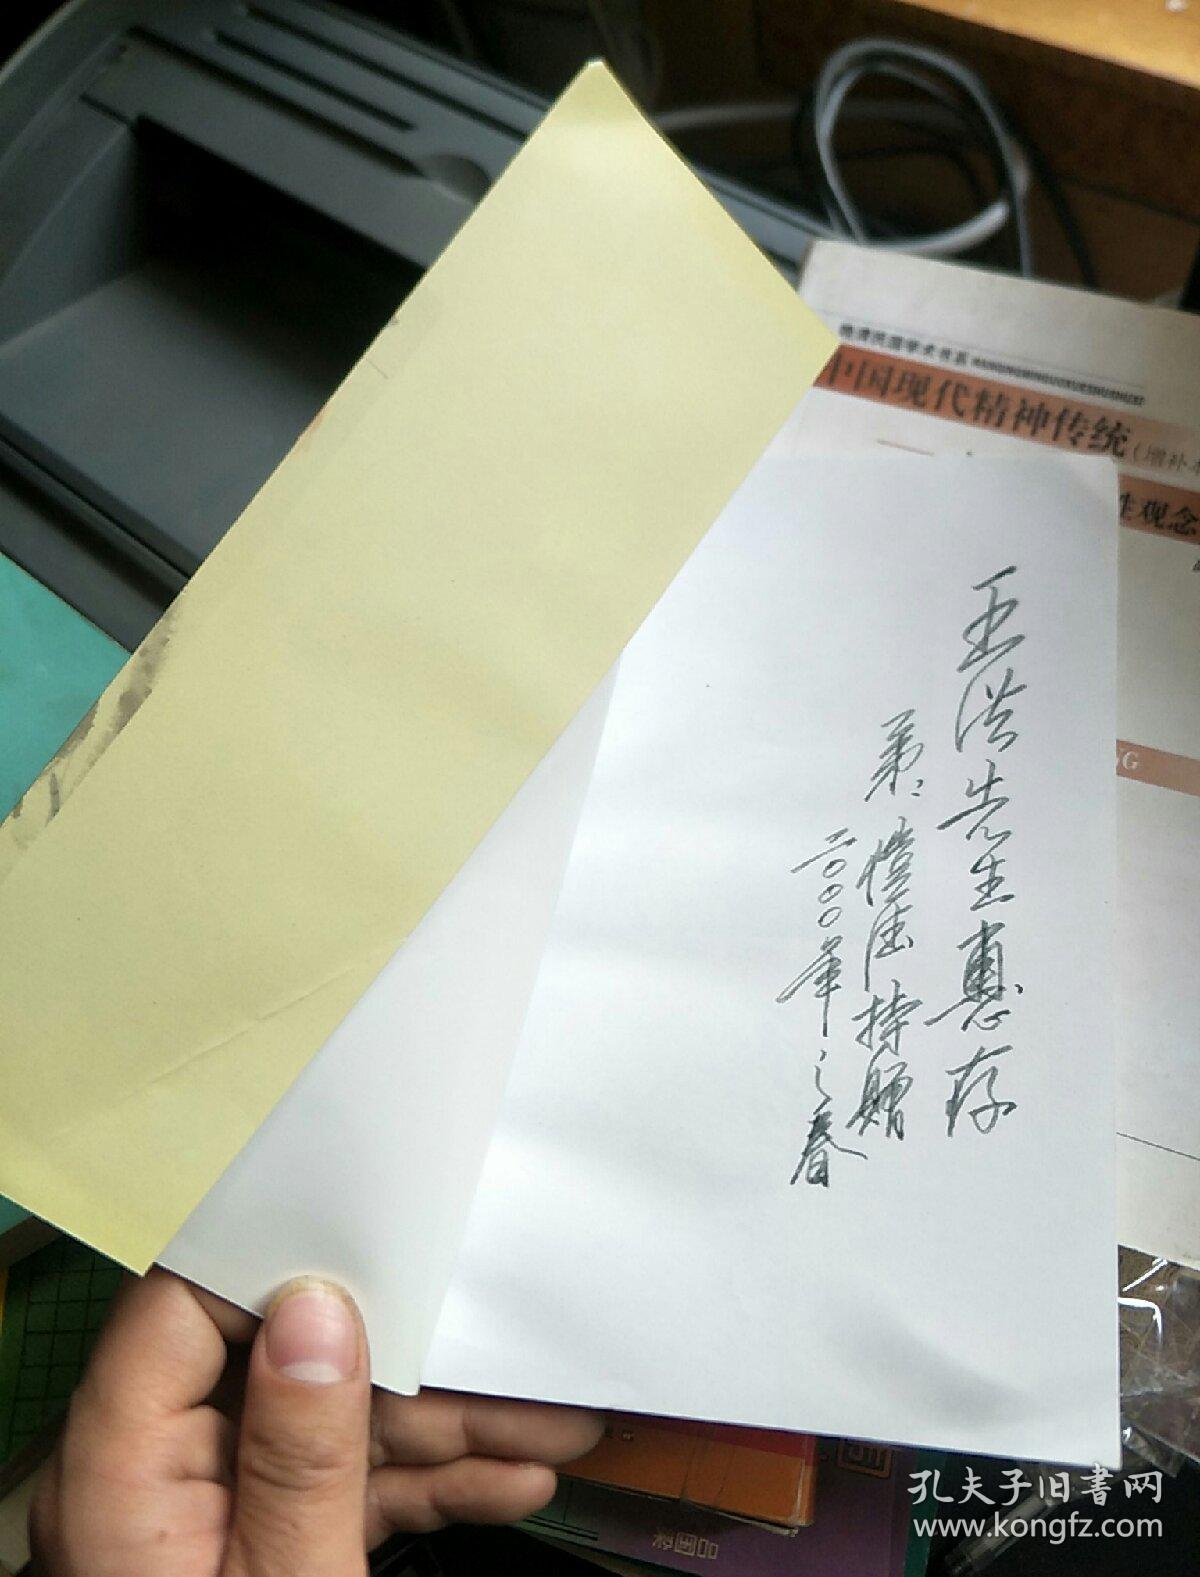 王洪先生惠存
弟: 德持赠
二〇〇〇年之春
晚清民国学术书系
中国现代精神传统(增补本
性观念
NG
孔夫子旧书网
www.kongfz.com